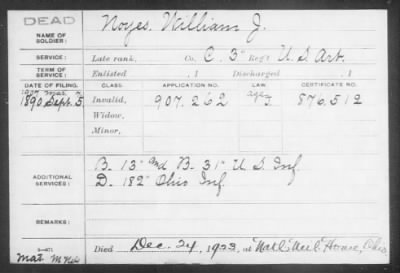 DEAD
NAME OF SOLDIER:
Noyes, William J.
SERVICE:
Late rank, Co. C. 3" Reg't U.S. Art.
TERM OF SERVICE:
Enlisted , 1 Discharged , 1
DATE OF FILING. CLASS. APPLICATION NO. LAW. CERTIFICATE NO.
1890 Sept. 5 Invalid, 907.262 876.512
Widow,
Minor,
ADDITIONAL SERVICES:
B. 13" and B. 31" U.S. Inf.
D. 182" Ohio Inf.
REMARKS:
Died Dec. 24, 1923, at Natl. Mil. Home, Ohio